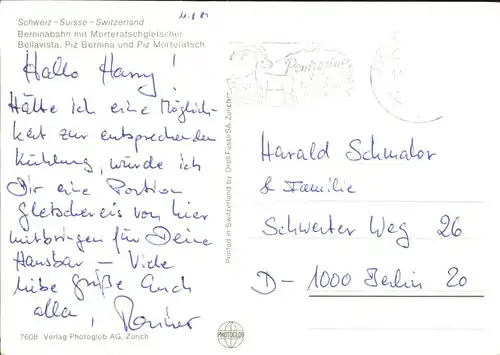 11.8.81
Schweiz – Suisse – Switzerland
Berninabahn mit Morteratschgletscher
Bellavista, Piz Bernina und Piz Morteratsch
Hallo Harry!
Hätte ich eine Möglich-
keit zur entsprechenden
Kühlung, würde ich
Dir eine Portion
Gletschereis von hier
mitbringen für Deine
Hausbar – Viele
liebe Grüße Euch
alle,
7608 Verlag Photoglob AG, Zürich
Printed in Switzerland by Orell Füssli SA, Zurich
Pontresina
Harald Schmalor
& Familie
Schwerter Weg 26
D- 1000 Berlin 20
PHOTOGLOB